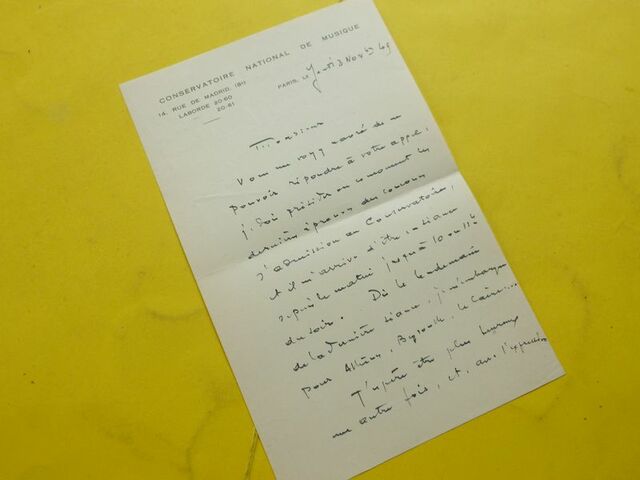 CONSERVATOIRE NATIONAL DE MUSIQUE
14, RUE DE MADRID (8e)
LABORDE 20-60
20-61
PARIS, LE Jeudi 3 Nov 49
Monsieur
Vous me voyez navré de ne
pouvoir répondre à votre appel,
je dois présider en ce moment les
dernières épreuves du concours
d'admission au Conservatoire,
et il m'arrive d'être en séance
depuis le matin jusqu'à 10 ou 11h
du soir. Dès le lendemain
de la dernière séance, je m'embarque
pour Athènes, Beyrouth, le Caire...
J'espère être plus heureux
une autre fois, et, avec l'expression